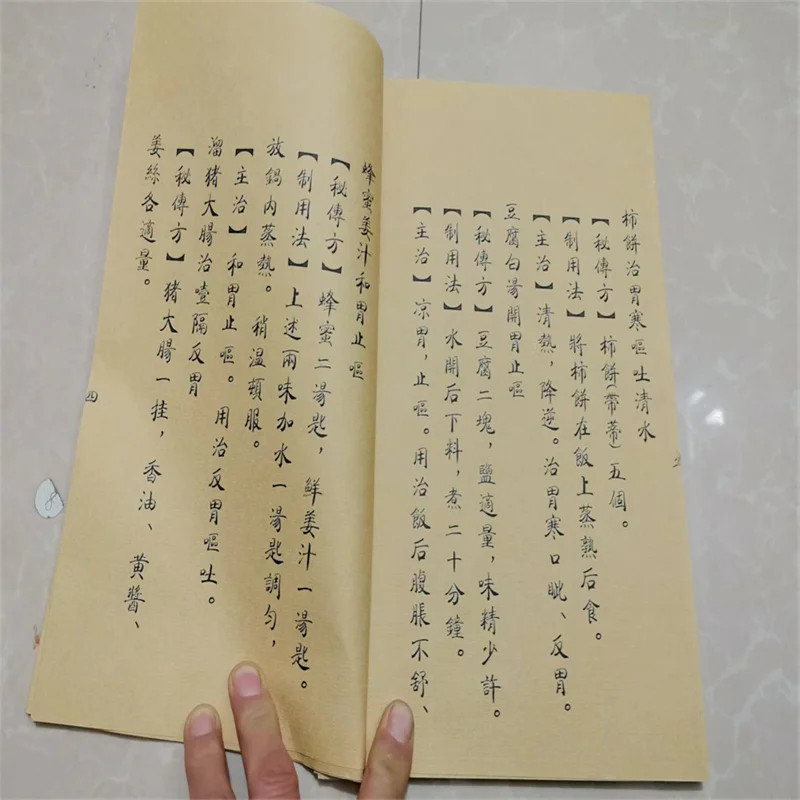 柿餅治胃寒嘔吐清水
【秘傳方】柿餅(帶蒂)五個。
【制用法】將柿餅在飯上蒸熟后食。
【主治】清熱,降逆。治胃寒口眦、反胃。
豆腐白湯開胃止嘔
【秘傳方】豆腐二塊,鹽適量,味精少許。
【制用法】水開后下料,煮二十分鐘。
【主治】凉胃,止嘔。用治飯后腹脹不舒、
蜂蜜姜汁和胃止嘔
【秘傳方】蜂蜜二湯匙,鮮姜汁一湯匙。
【制用法】上述兩味加水一湯匙調勻,
放鍋内蒸熱。稍温頓服。
【主治】和胃止嘔。用治反胃嘔吐。
溜猪大腸治噎隔反胃
【秘傳方】猪大腸一挂,香油、黄醬、
姜絲各適量。
四
8